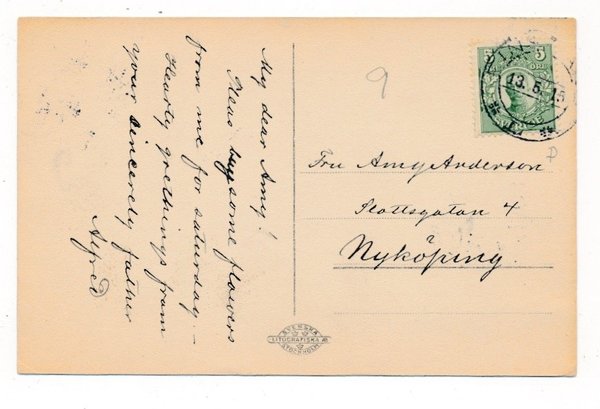 My dear Amy!
Pleas buy some flowers
from me for saturday. -
Hearly greethings from
your Sincerely father
Alfred
9
5 5
ÖRE
13.5.15
Fru Amy Anderson
Slottsgatan 4
Nyköping.
SVENSKA
LITOGRAFISKA AB
STOCKHOLM